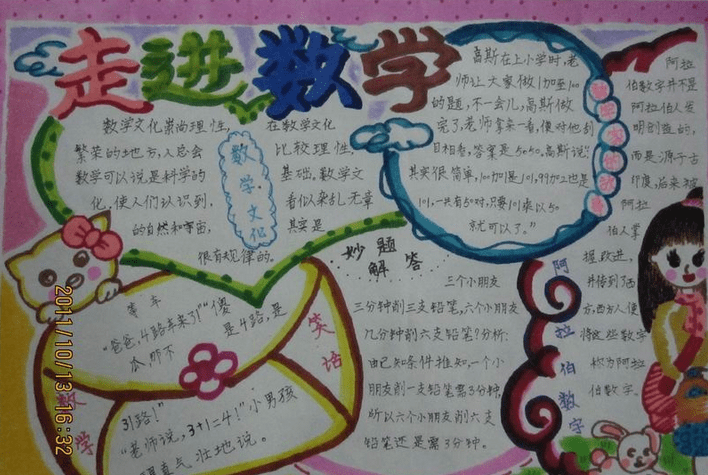 走进数学
数学文化崇尚理性,
繁荣的地方,人总会
数学可以说是科学的
化,使人们认识到,
的自然和宇宙,
很有规律的。
在数学文化
比较理性,
基础,数学文
看似杂乱无章
其实是
数学·文化
高斯在上小学时,老
师让大家做1加至100
的题,不一会儿,高斯做
完了,老师拿来一看,便对他刮
目相看,答案是5050。高斯说:“
其实很简单,100加1是101,99加2也是
101,一共有50对,只要101乘以50
就可以了。”
阿拉
伯数字并不是
阿拉伯人发
明创造的,
而是源于古
印度,后来被
阿拉
伯人掌
握、改进,
并传到了西
方,西方人便
将这些数字
称为阿拉
伯数字。
阿拉伯数字
妙题
解答
三个小朋友
三分钟削三支铅笔,六个小朋友
几分钟削六支铅笔?分析:
由已知条件推知,一个小
朋友削一支铅笔需3分钟,
所以六个小朋友削六支
铅笔还是需3分钟。
等车
“爸爸,4路车来了!”“傻
瓜,那不
是4路,是
31路!”
“老师说,3+1=4!”小男孩
理直气壮地说。
数学
笑话
2011/10/13 16:32